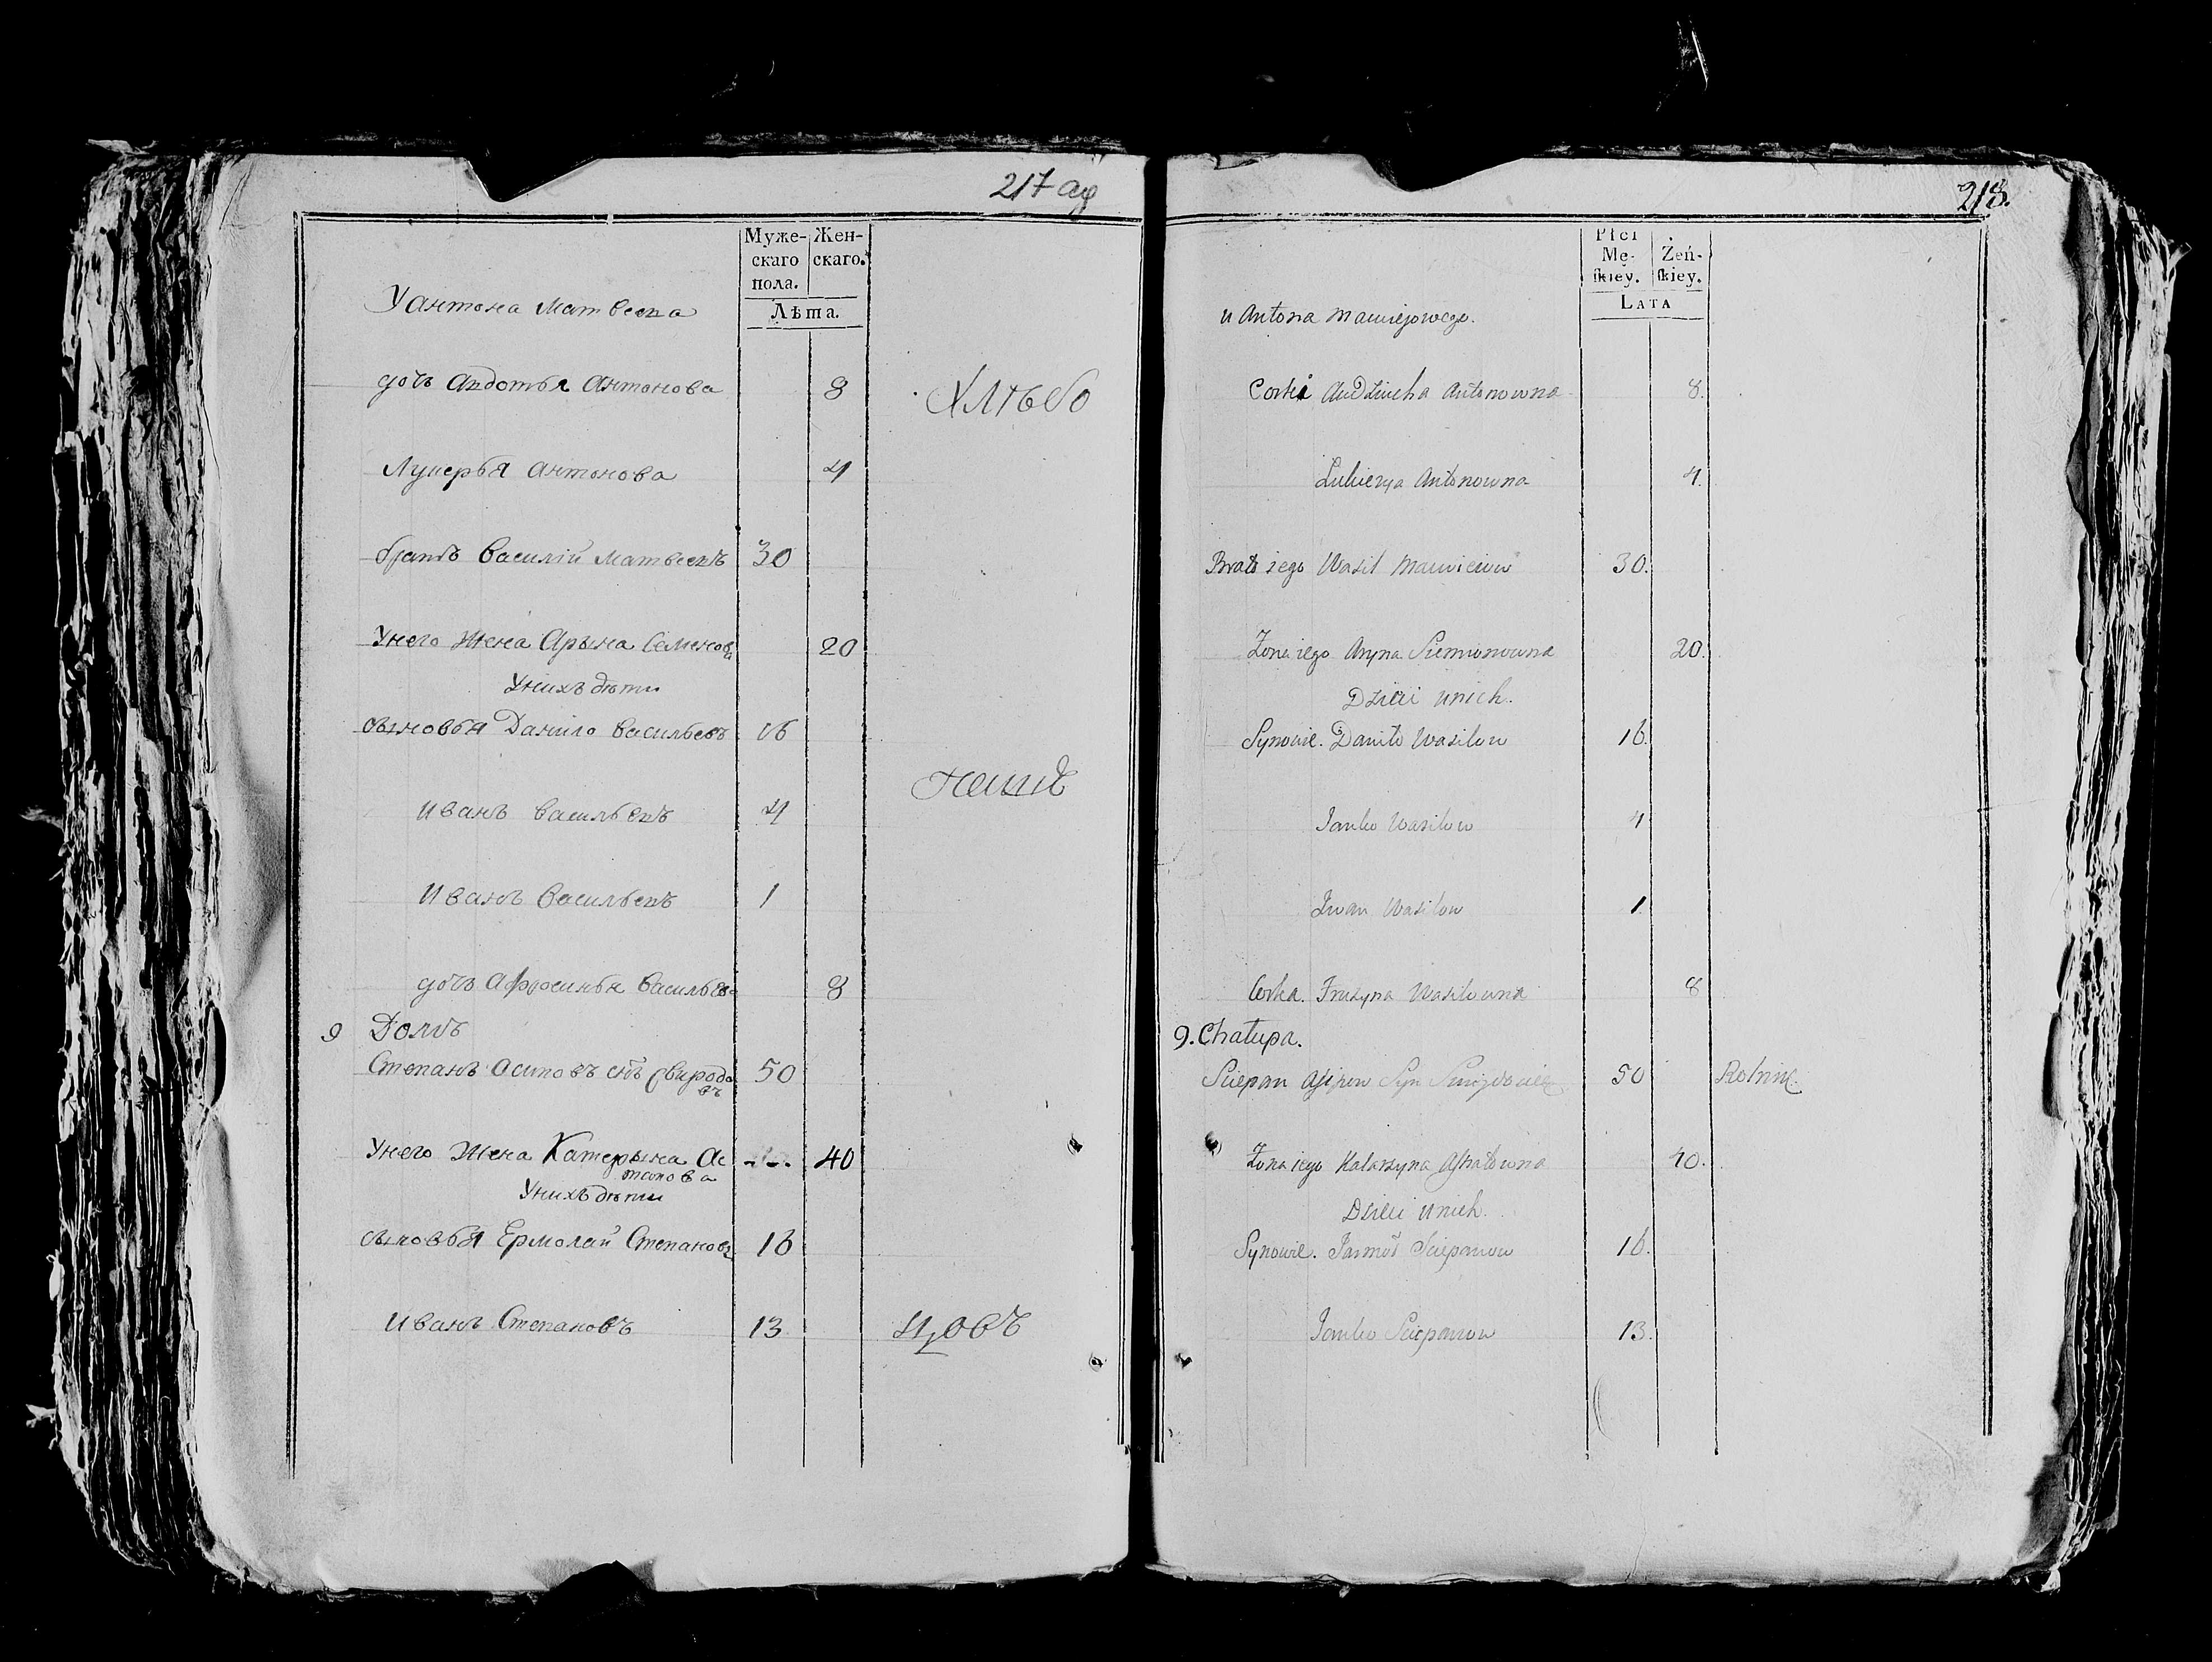 217 об
Муже-
скаго
пола.
Жен-
скаго.
Лѣта.
У антона Матвеева
дочь Авдотья Антонова 8
Хлѣбо
Лукерья Антонова 4
братъ Василiй Матвеевъ 30
У него Жена Арына Семенова 20
У нихъ дѣти
сыновья Данило Васильевъ 16
пашъ
Иванъ Васильевъ 4
Иванъ Васильевъ 1
дочь Афросинья Васильева 8
9 Домъ
Степанъ Осиповъ снъ Свиридо
въ 50
У него Жена Катерына Ас
тапова 40
У нихъ дѣти
сыновья Ермолай Степановъ 16
Иванъ Степановъ 13
цовъ
218.
Płci
Mę-
skiey.
Żeń-
skiey.
LATA
u Antona Maciejowego.
Corki Audziucha Antonowna 8.
Lukierya Antonowna 4.
Brat iego Wasil Macieiow 30.
Żona iego Aryna Siemionowna 20.
Dzieci u nich.
Synowie. Daniło Wasilow 16.
Janko Wasilow 4
Iwan Wasilow 1.
Corka. Fruzyna Wasilowna 8
9. Chałupa.
Sciepan Asipow Syn 50 Rolnik.
Żona iego Katarzyna Astapowna 40.
Dzieci u nich.
Synowie. Jarmoł Sciepanow 16.
Janko Sciepanow 13.